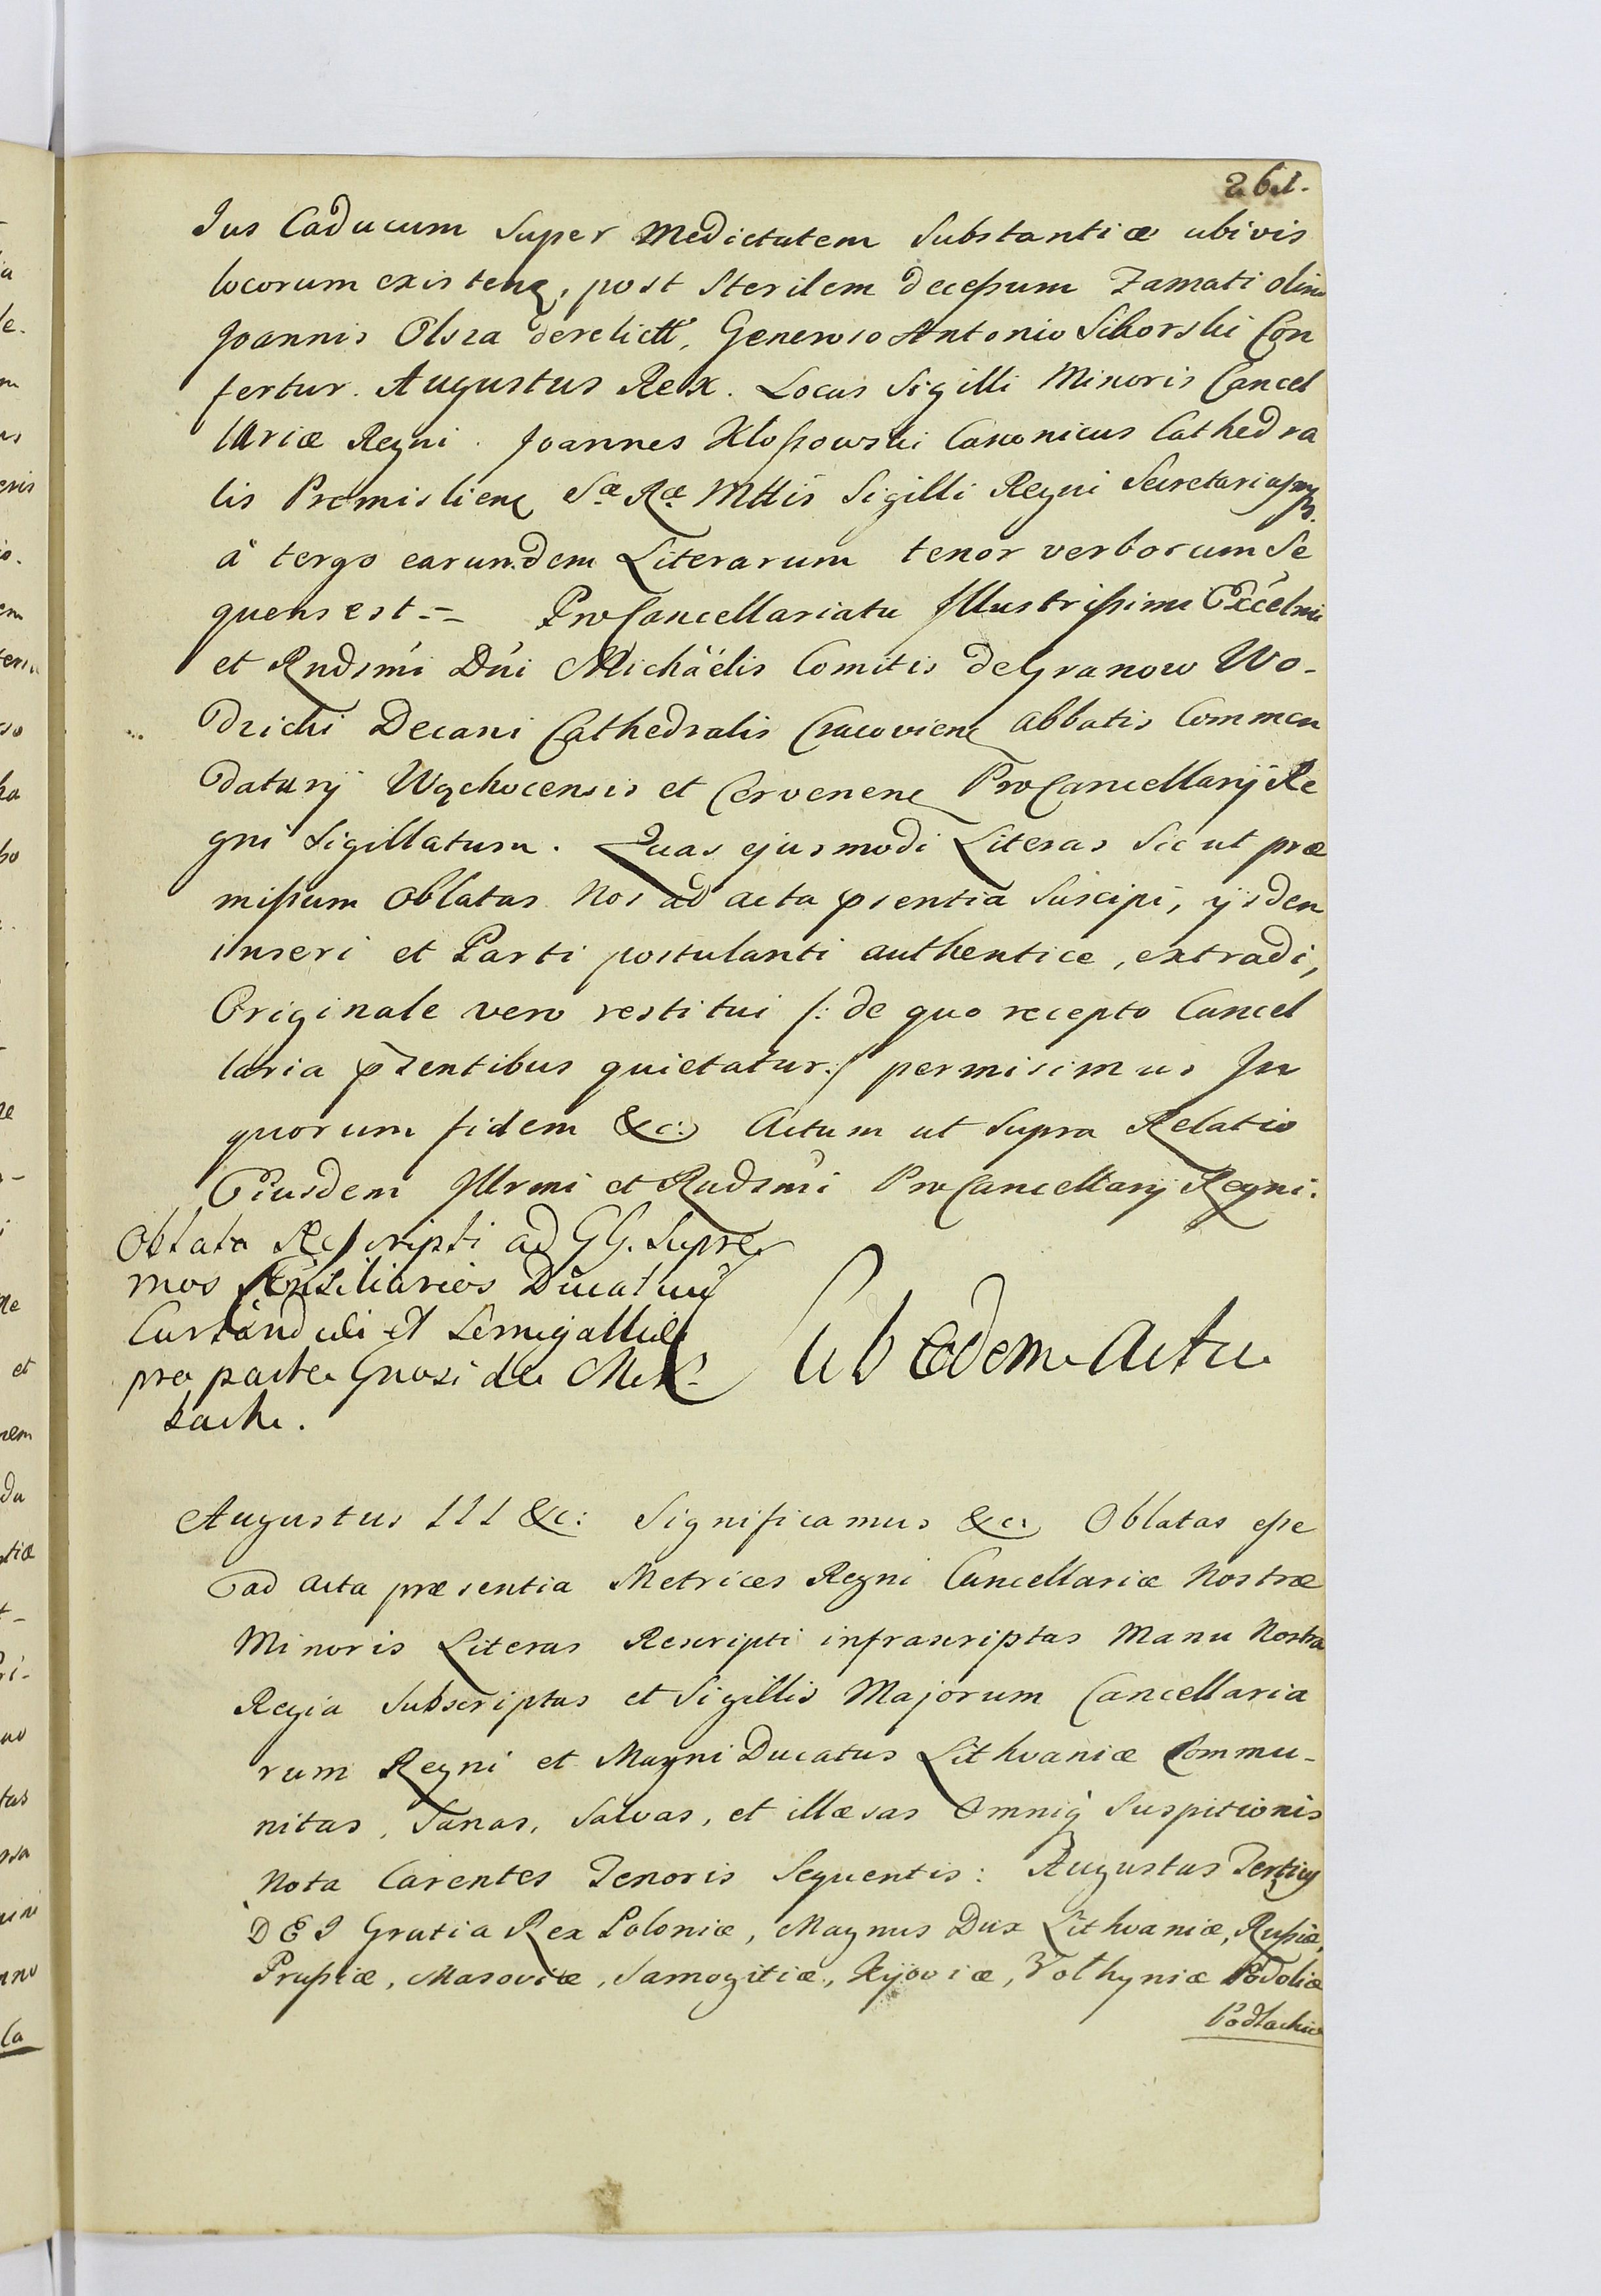 261.
Jus Caducum Super Medietatem Substantiæ ubivis
locorum existenꝫ, post Sterilem decessum Famati olim
Joannis Olsza derelictt, Generoso Antonio Sikorski Con
fertur. Augustus Rex. Locus Sigilli Minoris Cancel
lariæ Regni. Joannes Klossowski Canonicus Cathedra
lis Premislienꝫ Sæ Ræ Mttis Sigilli Regni Secretarius mp.
à tergo earundem Literarum tenor verborum Se
quens est.= ProCancellariatu Illustrissimi Excelmi
et Rndsmi Dni Michäelis Comitis de Granow Wo-
dzicki Decani Cathedralis Cracovienꝫ abbatis Commen
datarij Wąchocensis et Cervenenꝫ ProCancellarij Re
gni Sigillatum. Quas ejusmodi Literas Sic ut præ
missum Oblatas Nos ad acta psentia Suscipi, ijsdem
inseri et Parti postulanti authentice, extradi,
Originale vero restitui /: de quo recepto Cancel
laria psentibus quietatur :/ permisimus In
quorum fidem &c: Actum ut Supra Relatio
Eiusdem Illrmi et Rndsmi ProCancellarij Regni.
Oblata Rescripti ad GG. Supre
mos Consiliarios Ducatuũ
Curlandiæ et Semigalliæ
pro parte Gnosi de Mir
bach.
Sub Eodem Actu
Augustus III &c: Significamus &c: Oblatas esse
ad acta præsentia Metrices Regni Cancellariæ Nostræ
Minoris Literas Rescripti infrascriptas Manu Nostra
Regia Subscriptas et Sigillis Majorum Cancellaria
rum Regni et Magni Ducatus Lithvaniæ Commu-
nitas, Sanas, Salvas, et illæsas Omniq Suspitionis
Nota Carentes Tenoris Sequentis: Augustus Tertius
DEI Gratia Rex Poloniæ, Magnus Dux Lithvaniæ, Russiæ,
Prussiæ, Masoviæ, Samogitiæ, Kijoviæ, Volhyniæ Podoliæ
Podlachiæ